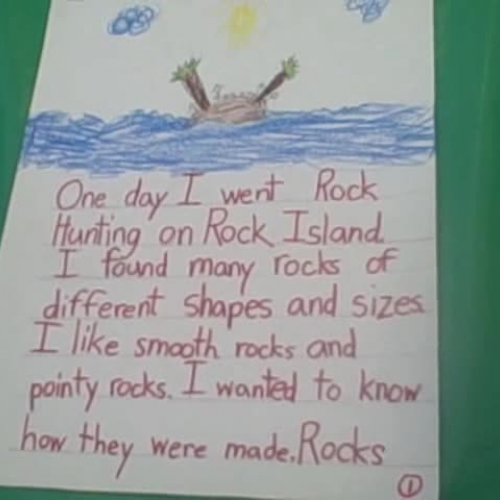 One day I went Rock
Hunting on Rock Island
I found many rocks of
different shapes and sizes
I like smooth rocks and
pointy rocks. I wanted to know
how they were made. Rocks
1